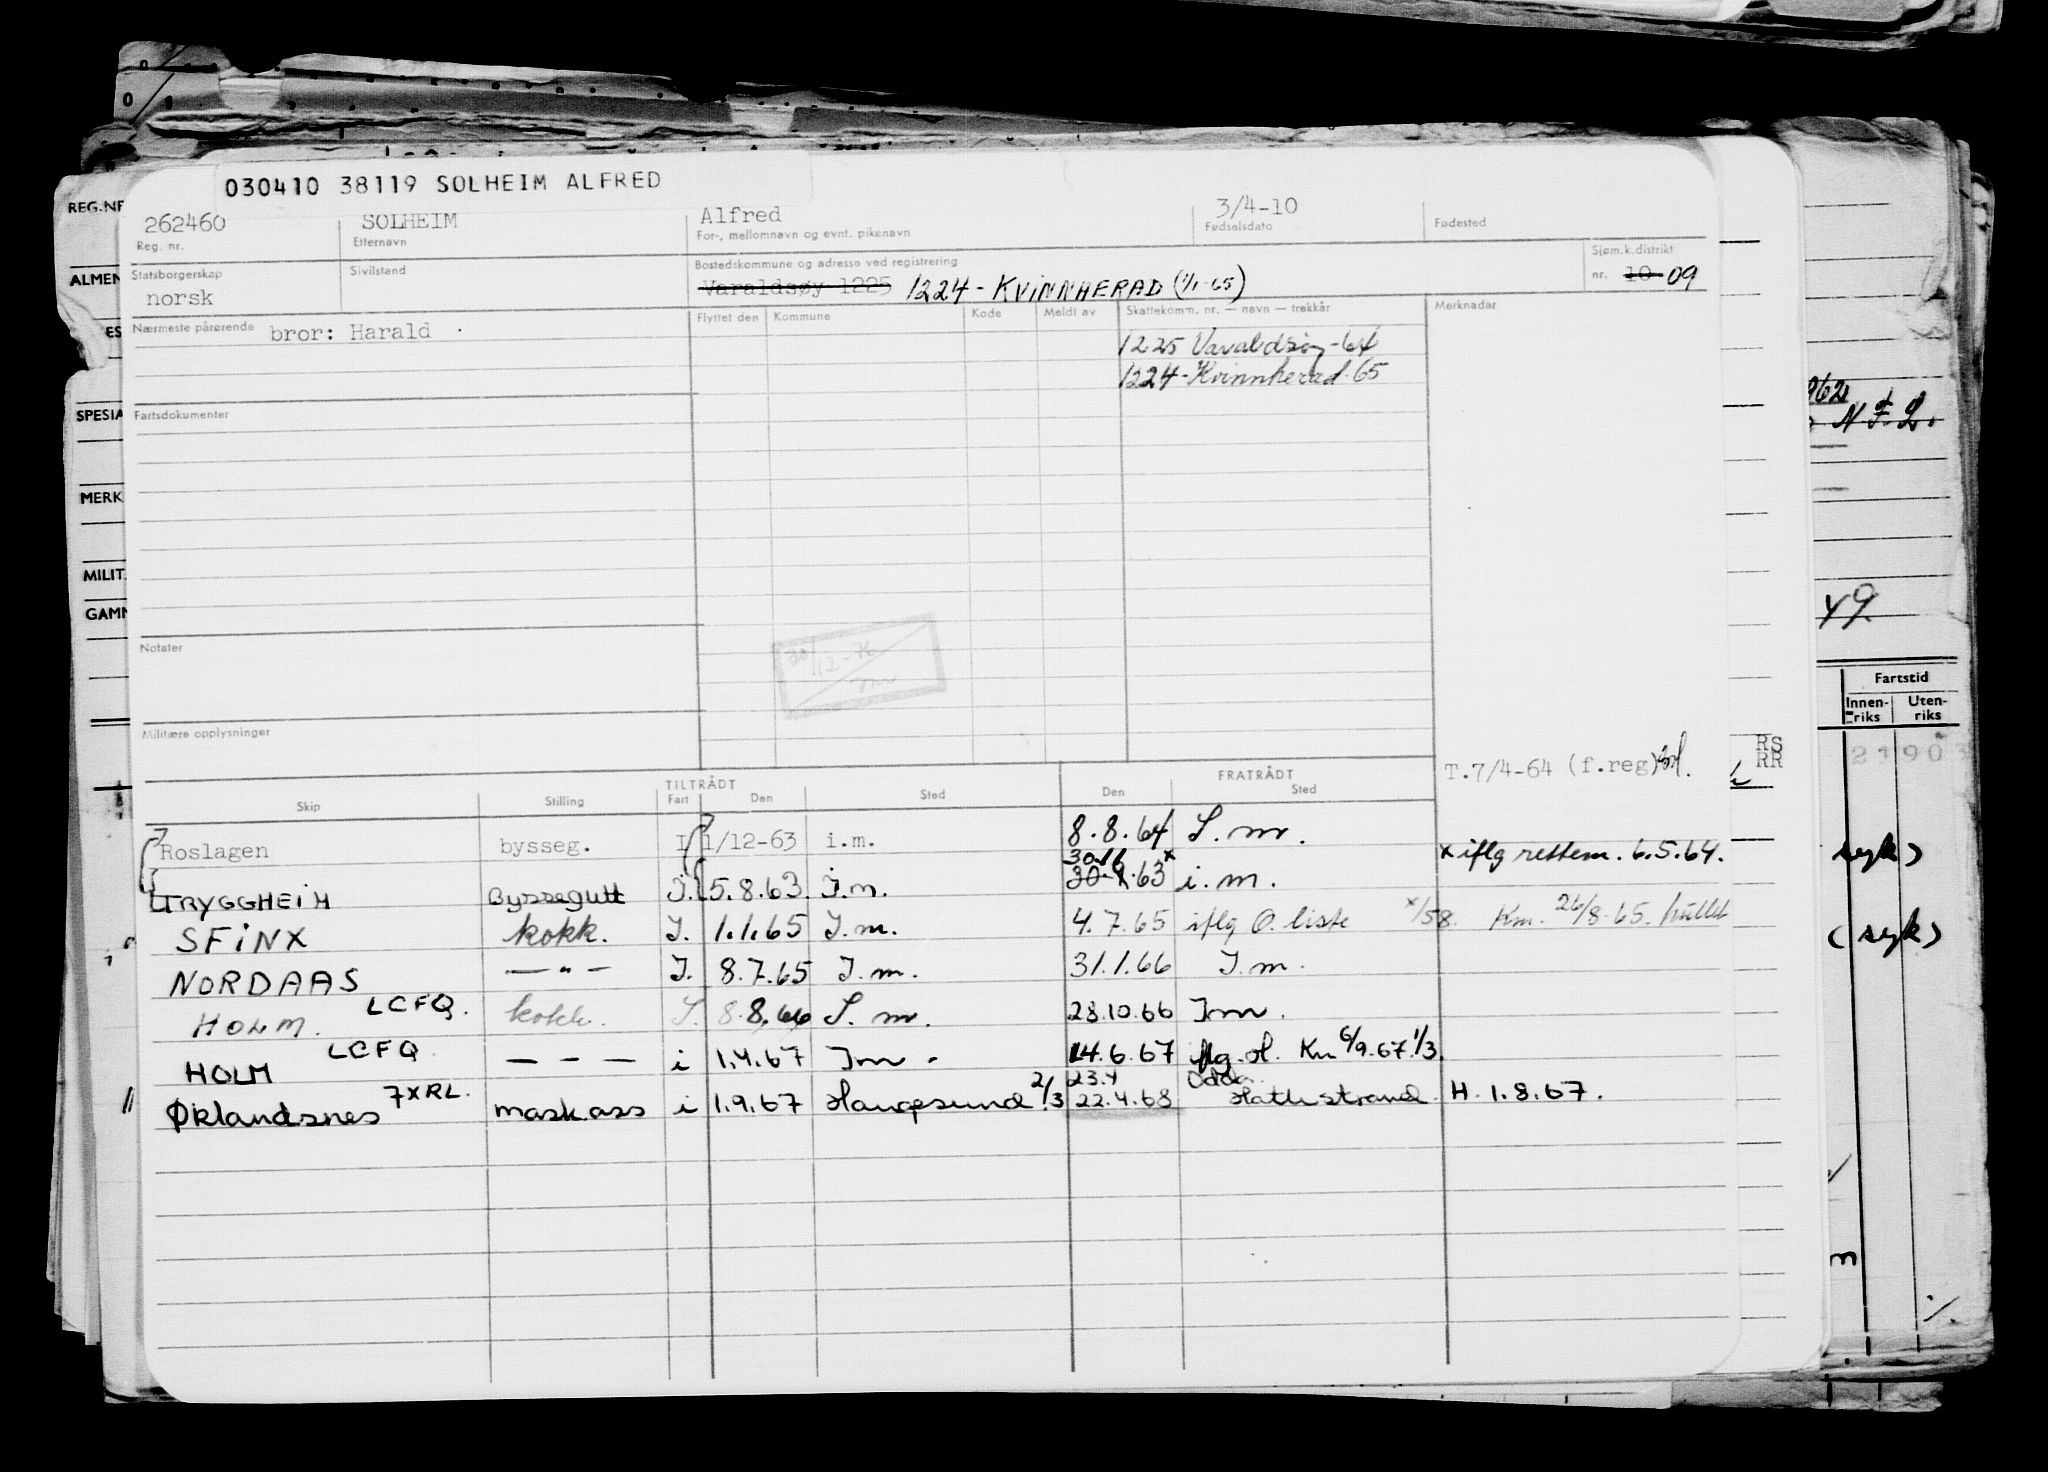 030410 38119 SOLHEIM ALFRED
262460 SOLHEIM Alfred 3/4-10
Reg. nr. Etternavn For-, mellomnavn og evnt. pikenavn Fødselsdato Fødested
Statsborgerskap Sivilstand Bostedskommune og adresse ved registrering Sjøm.k.distrikt
norsk Varaldsøy 1225 1224 - KVINNHERAD (1/1-65) nr. 10 09
Nærmeste pårørende bror: Harald Flyttet den Kommune Kode Meldt av Skattekomm. nr. — navn — trekkår Merknader
1225 Varaldsøy-64
1224-Kvinnherad-65
Fartsdokumenter
Notater
30/12-76
Militære opplysninger
T.7/4-64 (f.reg)
TILTRÅDT FRATRÅDT
Skip Stilling Fart Den Sted Den Sted
Roslagen bysseg. I 1/12-63 i.m. 8.8.64 S.m.
x iflg rettem. 6.5.64.
30.11
TRYGGHEIM Byssegutt I. 5.8.63. I.m. 63 x i.m.
SFINX kokk. I. 1.1.65 I.m. 4.7.65 iflg O. liste x/58. Km. 26/8-65. hullet
NORDAAS — " — I. 8.7.65 I.m. 31.1.66 I.m.
HOLM. LCFQ. kokk. S. 8.8.66 S.m. 28.10.66 Im.
HOLM LCFQ — - — i 1.4.67 Im. 14.6.67 iflg. ol. Km 6/9.67. 1/3
23.4 Odda
Ørlandsnes 7XRL. mask.ass i 1.9.67 Haugesund 2/3 22.4.68 H. 1.8.67.
REG.NR
ALMEN
ES
SPESIA
MERK
MILIT.
GAMM
962
N.F.
49
RS
RR
Fartstid
Innen-riks Uten-riks
2190
syk)
(syk)
m